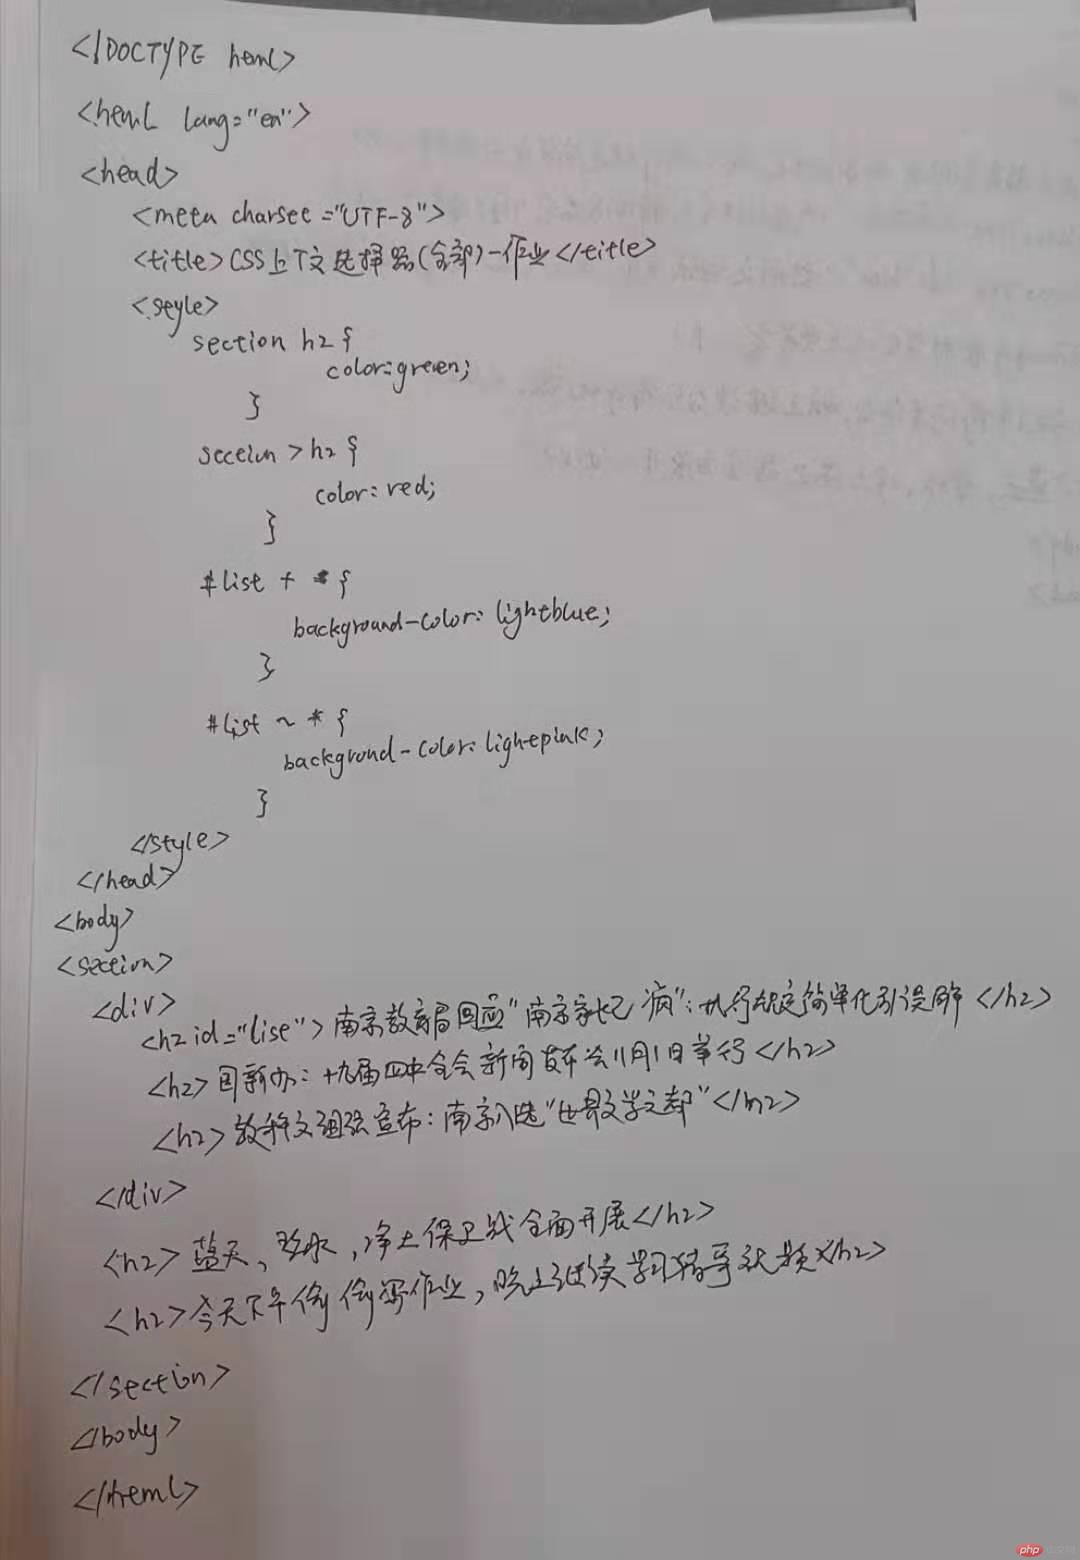 <!DOCTYPE html>
<html lang="en">
<head>
<meta charset="UTF-8">
<title>CSS上下文选择器(全部)-作业</title>
<style>
section h2{
color:green;
}
section > h2{
color: red;
}
#list + *{
background-color: lightblue;
}
#list ~ *{
backgrond-color: lightpink;
}
</style>
</head>
<body>
<section>
<div>
<h2 id="list">南京教育局回应"南京家长已 病":执行规定简单化引误解</h2>
<h2>国新办:十九届四中全会新闻发布会11月1日举行</h2>
<h2>教科文组织宣布:南京入选"世界文学之都"</h2>
</div>
<h2>蓝天,碧水,净土保卫战全面开展</h2>
<h2>今天下午偷偷写作业,晚上继续学习猪哥视频</h2>
</section>
</body>
</html>
php